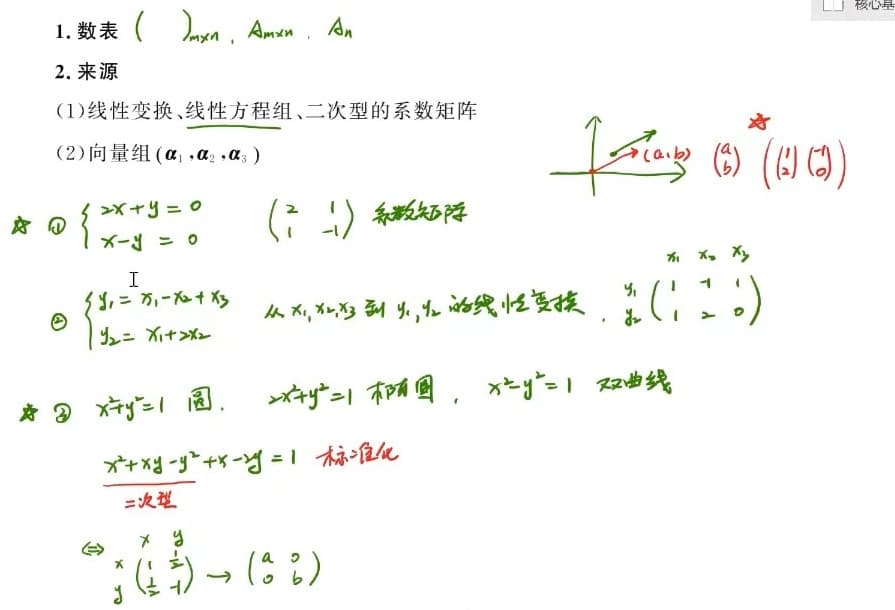 核心基
1. 数表 ( )ₘₓₙ , Aₘₓₙ . Aₙ
2. 来源
(1)线性变换、线性方程组、二次型的系数矩阵
(2)向量组(α₁,α₂,α₃)
(a,b) (a b) ((1 2) (-1 0))
☆ ① { 2x+y=0 (2 1) 系数矩阵
x-y=0 (1 -1)
x₁ x₂ x₃
② { y₁=x₁-x₂+x₃ 从x₁,x₂,x₃到y₁,y₂的线性变换. y₁ (1 -1 1)
y₂=x₁+2x₂ y₂ (1 2 0)
☆ ③ x²+y²=1 圆. 2x²+y²=1 椭圆, x²-y²=1 双曲线
x²+xy-y²+x-2y=1 标准化
二次型
x y
⇔ x (1 1/2) → (a 0)
y (1/2 -1) (0 b)